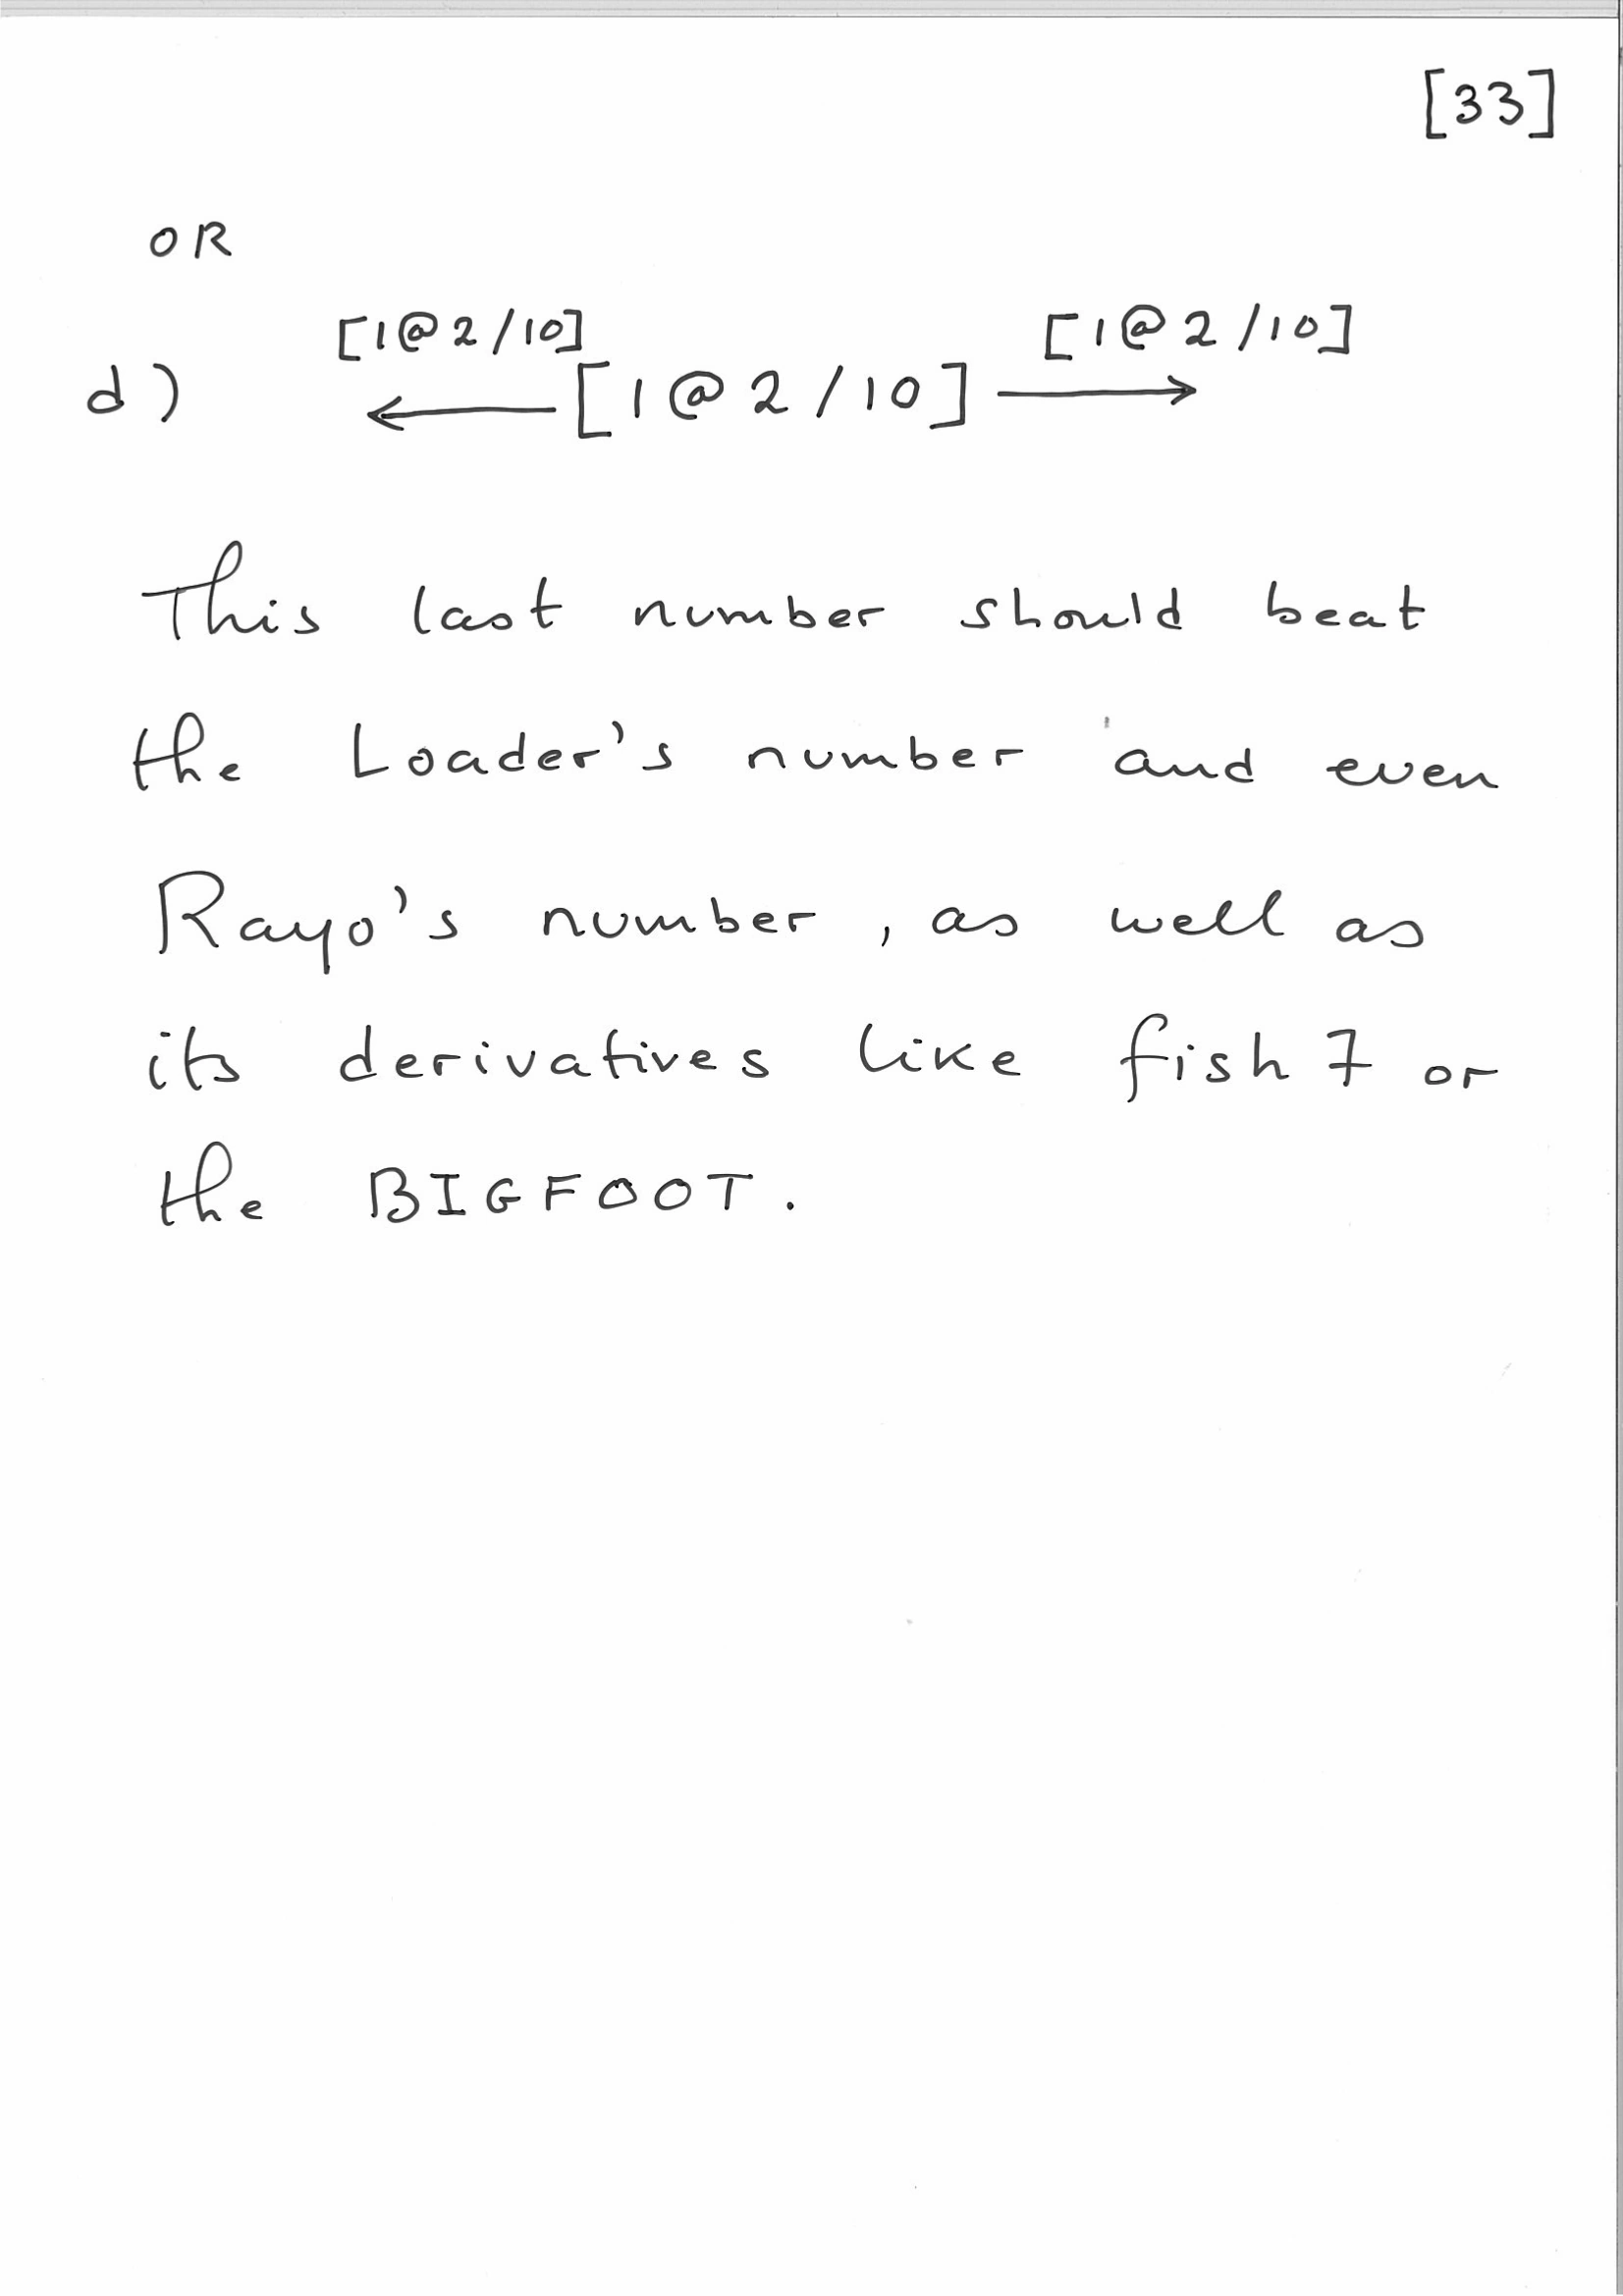 [33]
OR
[1@2/10] [1@2/10]
d) ← [1@2/10] →
This last number should beat
the Loader's number and even
Rayo's number, as well as
its derivatives like fish 7 or
the BIGFOOT.